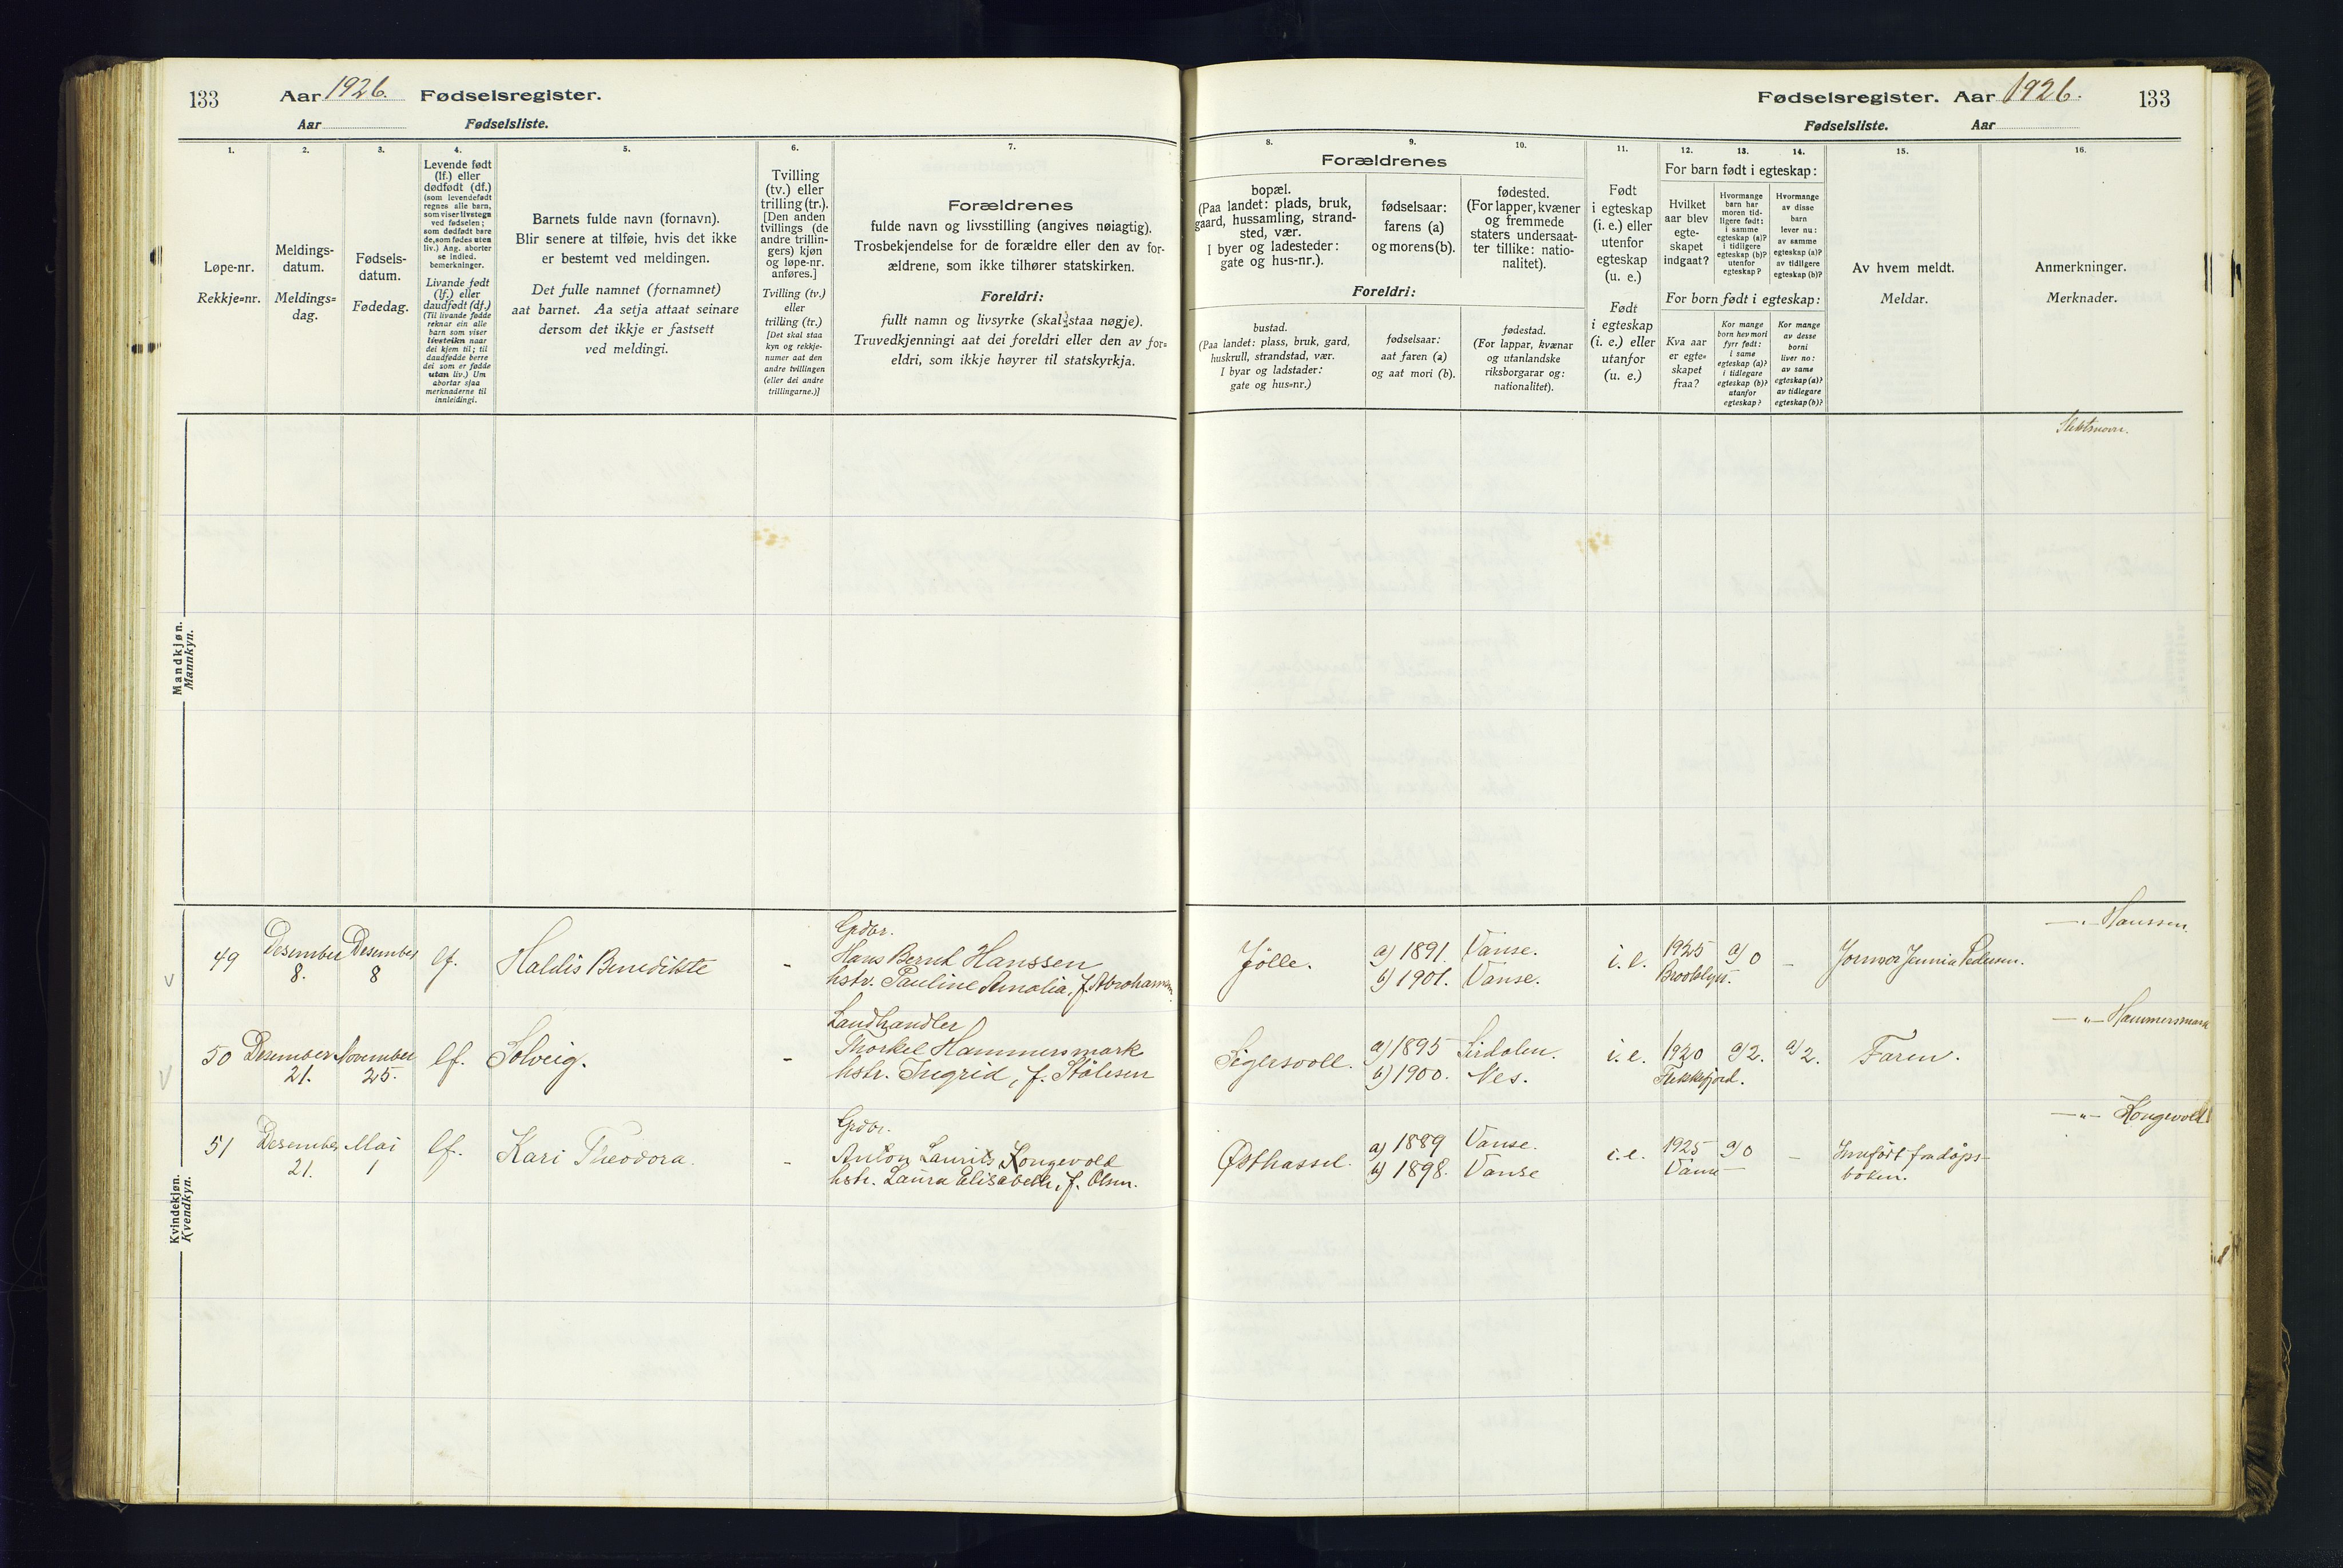 133
Aar 1926. Fødselsregister.
Aar Fødselsliste.
Fødselsregister. Aar 1926. 133
Fødselsliste. Aar
1. 2. 3. 4. 5. 6. 7.
Løpe-nr.
Rekkje=nr.
Meldings-
datum.
Meldings=
dag.
Fødsels-
datum.
Fødedag.
Levende født
(lf.) eller
dødfødt (df.)
(som levendefødt
regnes alle barn,
som viser livstegn
ved fødselen;
som dødfødt bare
de, som fødes uten
liv.) Ang. aborter
se indled.
bemerkninger.
Livande født
(lf.) eller
daudfødt (df.)
(Til livande fødde
reknar ein alle
barn som viser
livsteikn naar
dei kjem til; til
daudfødde berre
dei som er fødde
utan liv.) Um
abortar sjaa
merknaderne til
innleidingi.
Barnets fulde navn (fornavn).
Blir senere at tilføie, hvis det ikke
er bestemt ved meldingen.
Det fulle namnet (fornamnet)
aat barnet. Aa setja attaat seinare
dersom det ikkje er fastsett
ved meldingi.
Tvilling
(tv.) eller
trilling (tr.).
[Den anden
tvillings (de
andre trillin-
gers) kjøn
og løpe-nr.
anføres.]
Tvilling (tv.)
eller
trilling (tr.)
[Det skal staa
kyn og rekkje-
numer aat den
andre tvillingen
(eller dei andre
trillingarne.)]
Forældrenes
fulde navn og livsstilling (angives nøiagtig).
Trosbekjendelse for de forældre eller den av for-
ældrene, som ikke tilhører statskirken.
Foreldri:
fullt namn og livsyrke (skal staa nøgje).
Truvedkjenningi aat dei foreldri eller den av for=
eldri, som ikkje høyrer til statskyrkja.
8. 9. 10. 11. 12. 13. 14. 15. 16.
Forældrenes
bopæl.
(Paa landet: plads, bruk,
gaard, hussamling, strand-
sted, vær.
I byer og ladesteder:
gate og hus-nr.).
fødselsaar:
farens (a)
og morens (b).
fødested.
(For lapper, kvæner
og fremmede
staters undersaat-
ter tillike: natio-
nalitet).
Foreldri:
bustad.
(Paa landet: plass, bruk, gard,
huskrull, strandstad, vær.
I byar og ladstader:
gate og hus=nr.)
fødselsaar:
aat faren (a)
og aat mori (b).
fødestad.
(For lappar, kvænar
og utanlandske
riksborgarar og:
nationalitet).
Født
i egteskap
(i. e.) eller
utenfor
egteskap
(u. e.)
Født
i egteskap
(i. e.) eller
utanfor
(u. e.)
For barn født i egteskap:
Hvilket
aar blev
egte-
skapet
indgaat?
Hvormange
barn har
moren tid-
ligere født:
i samme
egteskap (a)?
i tidligere
egteskap (b)?
utenfor
egteskap?
Hvormange
av disse
barn
lever nu:
av samme
egteskap (a)?
av tidligere
egteskap (b)?
For born født i egteskap:
Kva aar
er egte=
skapet
fraa?
Kor mange
born hev mori
fyrr født:
i same
egteskap (a)?
i tidlegare
egteskap (b)?
utanfor
egteskap?
Kor mange
av desse
borni
liver no:
av same
egteskap (a)?
av tidlegare
egteskap (b)?
Av hvem meldt.
Meldar.
Anmerkninger.
Merknader.
Slektsnavn.
Mandkjøn.
Mannkyn.
49 Desember 8. Desember 8 lf. Haldis Benedikte -
Grdbr.
Hans Bernt Hanssen
hstr. Pauline Amalia, f. Abrahamsen.
Jölle. a) 1891. Vanse.
b) 1901. Vanse.
i. e. 1925 Brooklyn. a/0 - Jormor Jennie Pedersen. —"— Hanssen.
50 Desember 21. November 25. lf. Solveig. -
Landhandler
Thorkel Hammersmark
hstr. Ingrid, f. Stålesen
Sigersvoll. a) 1895 Sirdalen.
b) 1900. Nes.
i. e. 1920 Flekkefjord. a/2. a/2. Faren. —"— Hammersmark
51 Desember 21. Mai 1 lf. Kari Theodora. -
Grdbr.
Anton Laurits Kongevold
hstr. Laura Elisabeth, f. Olsen.
Østhassel. a) 1889 Vanse.
b) 1898. Vanse
i. e. 1925 Vanse a/0 - Innfört fra dåps-
boken. —"— Kongevold
Kvindekjøn.
Kvendkyn.